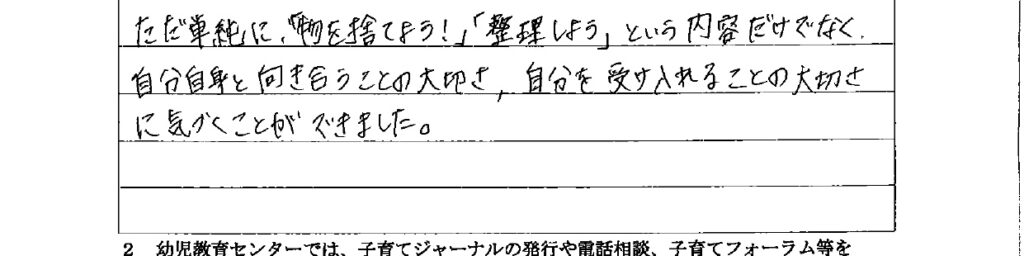 ただ単純に、「物を捨てよう！」「整理しよう」という内容だけでなく、
自分自身と向き合うことの大切さ、自分を受け入れることの大切さ
に気づくことができました。
2　幼児教育センターでは、子育てジャーナルの発行や電話相談、子育てフォーラム等を